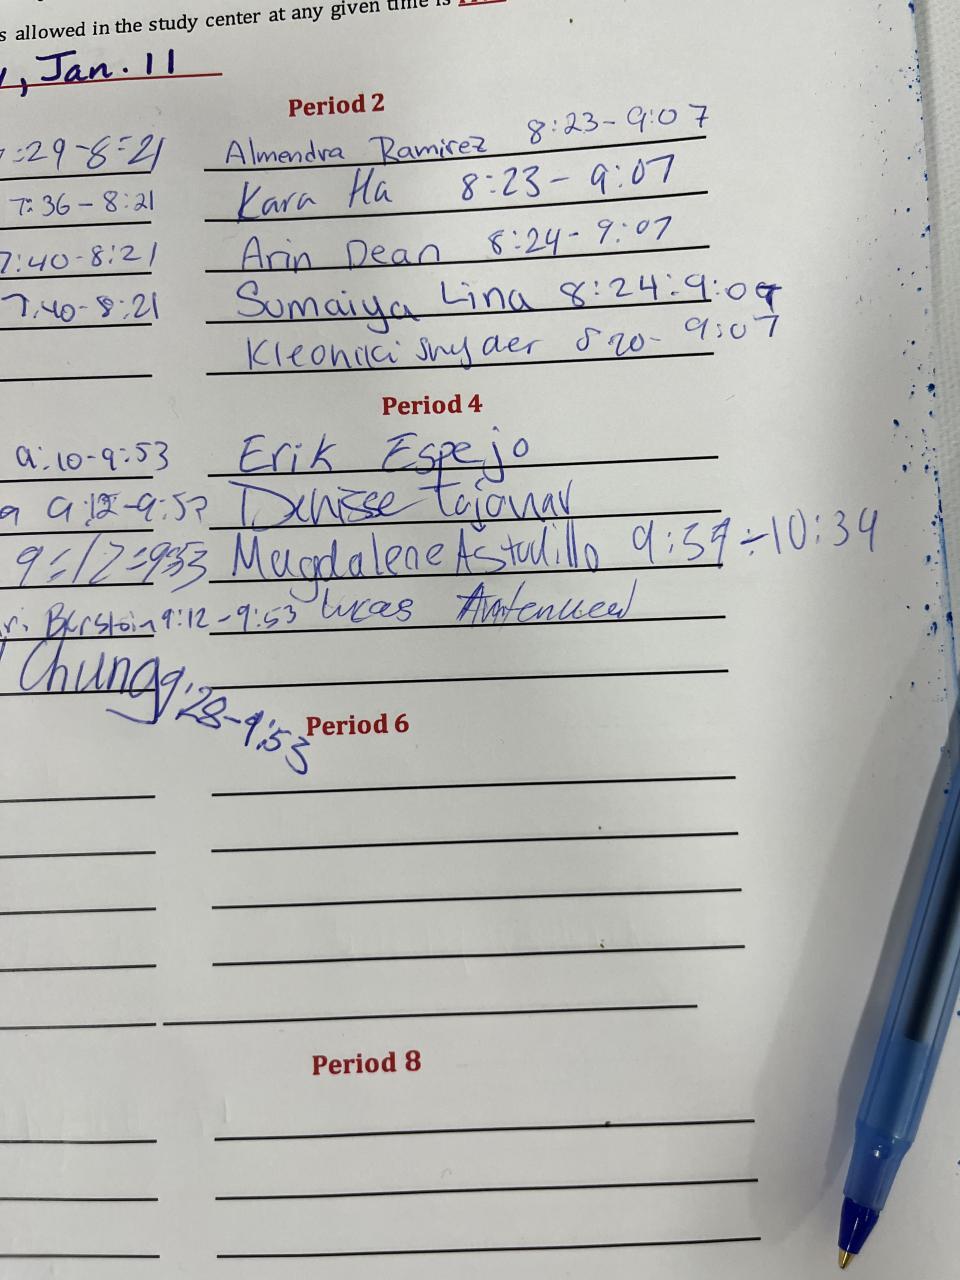 s allowed in the study center at any given time is
, Jan. 11
Period 2
:29-8:21 Almendra Ramirez 8:23-9:07
7:36-8:21 Kara Ha 8:23-9:07
7:40-8:21 Arin Dean 8:24-9:07
7:40-8:21 Sumaiya Lina 8:24-9:07
Kleoniki Snyder 820-9:07
Period 4
9:10-9:53 Erik Espejo
9:12-9:53 Denisse
9:12-9:53 Magdalene Astudillo 9:59-10:34
9:12-9:53 Lucas
Chung 9:28-9:53
Period 6
Period 8